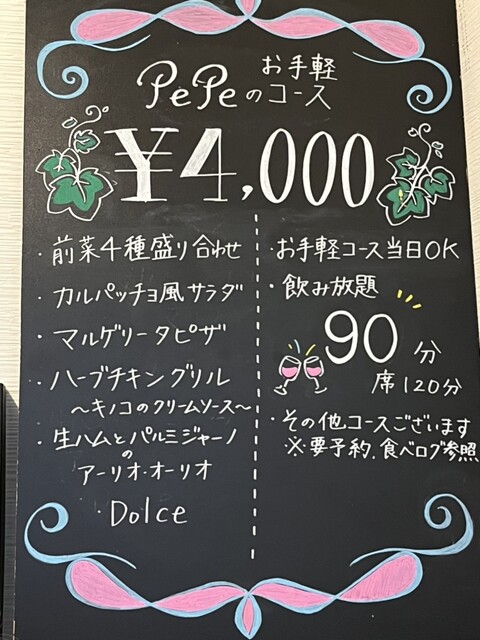 お手軽
PePeのコース
¥4,000
・前菜4種盛り合わせ
・カルパッチョ風サラダ
・マルゲリータピザ
・ハーブチキングリル
～キノコのクリームソース～
・生ハムとパルミジャーノ
の
アーリオ・オーリオ
・Dolce
・お手軽コース当日OK
・飲み放題
90分
席120分
・その他コースございます
※要予約.食べログ参照